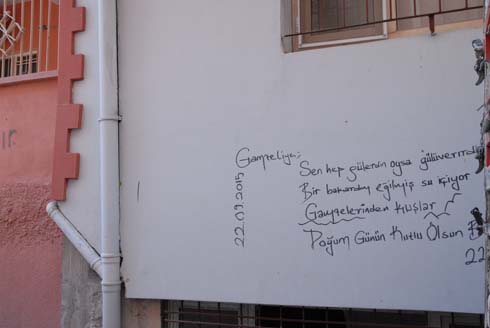 Gamzeliye;
Sen hep gülersin oysa gülüverirdi
Bir bakarsın eğilmiş su içiyor
Gamzelerinden kuşlar
Doğum Günün Kutlu Olsun
22
22.07.2015